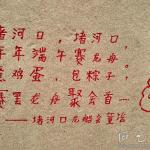 堵河口，堵河口，
年年端午赛龙舟
煮鸡蛋，包粽子，
赛罢龙舟聚会首…
——堵河口龙船会童谣